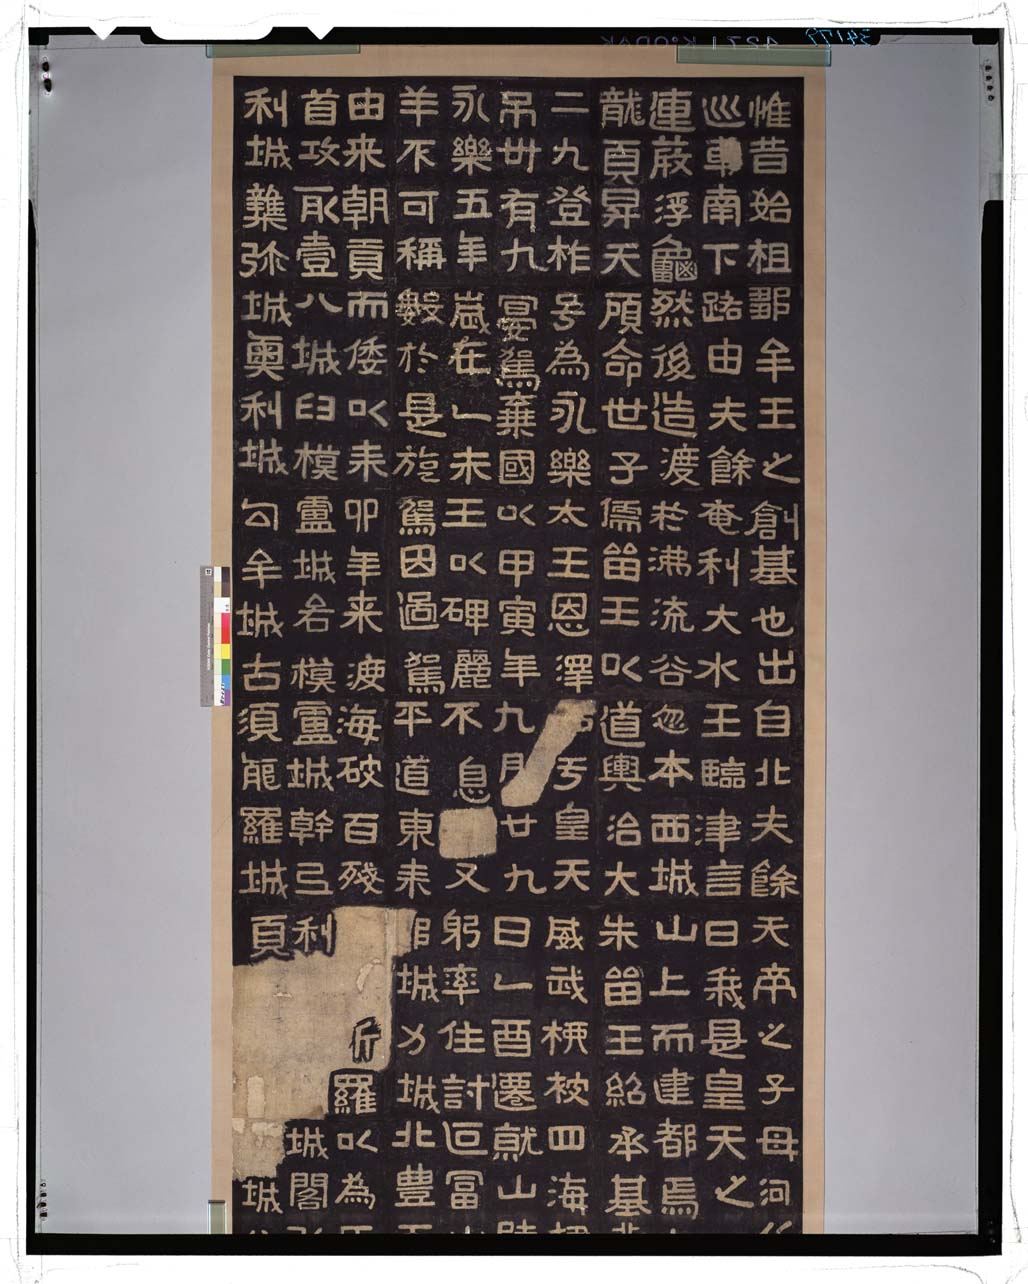 惟昔始祖鄒牟王之創基也出自北夫餘天帝之子母河
巡車南下路由夫餘奄利大水王臨津言曰我是皇天之
連葭浮龜然後造渡於沸流谷忽本西城山上而建都焉
龍頁昇天顧命世子儒留王以道輿治大朱留王紹承基
二九登祚号為永樂太王恩澤于皇天威武柳被四海
吊卅有九宴駕棄國以甲寅年九月廿九日乙酉遷就山
永樂五年歲在乙未王以碑麗不息又躬率住討叵富
羊不可稱數於是旋駕因過駕平道東来城力城北豊
由来朝貢而倭以耒卯年来渡海破百殘斤羅以為
首攻取壹八城臼模盧城各模盧城幹弖利城閣
利城弥城奧利城勾牟城古須能羅城頁城